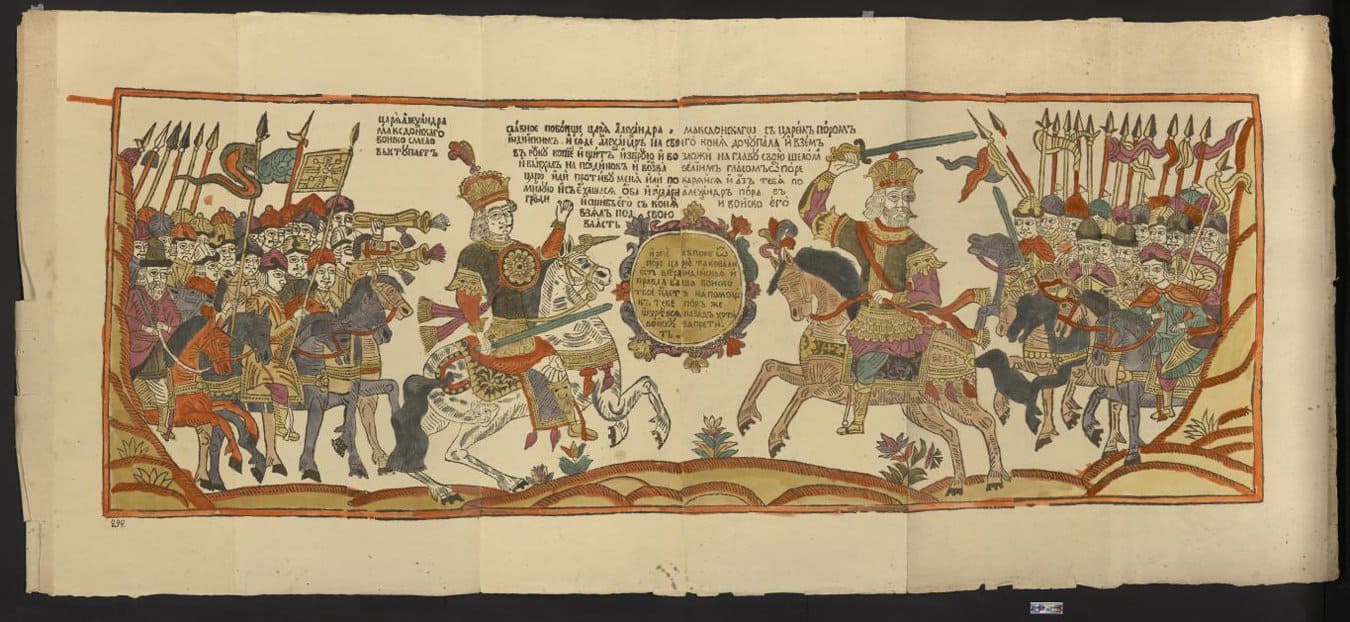 царя алеѯандра
макѣдонскаго
воиско смело
выступаетъ
славное побоище царя алеѯандра макѣдонскагѡ съ царемъ поромъ
индиискимъ. и сѣде алеѯандръ на своего коня дочупала и вземъ
въ руку копие и щитъ и збрую и возложи на главу свою шелом
и выехавъ на поединокъ и возва велиимъ гласомъ ѿ поре
царю иди противу меня или покаряися и азъ тебя по
милую и съѣхашеся оба и удари алеѯандръ пора въ
груди и сшибъ его съ коня и воиско его
взялъ под свою
власть
и рече
поре царю таковали
есть индиская и
правда ваша воиско
твое идетъ на помощь
къ тебе поръ же
озрѣвся назадъ хотя
воиску запрети
ть
294.